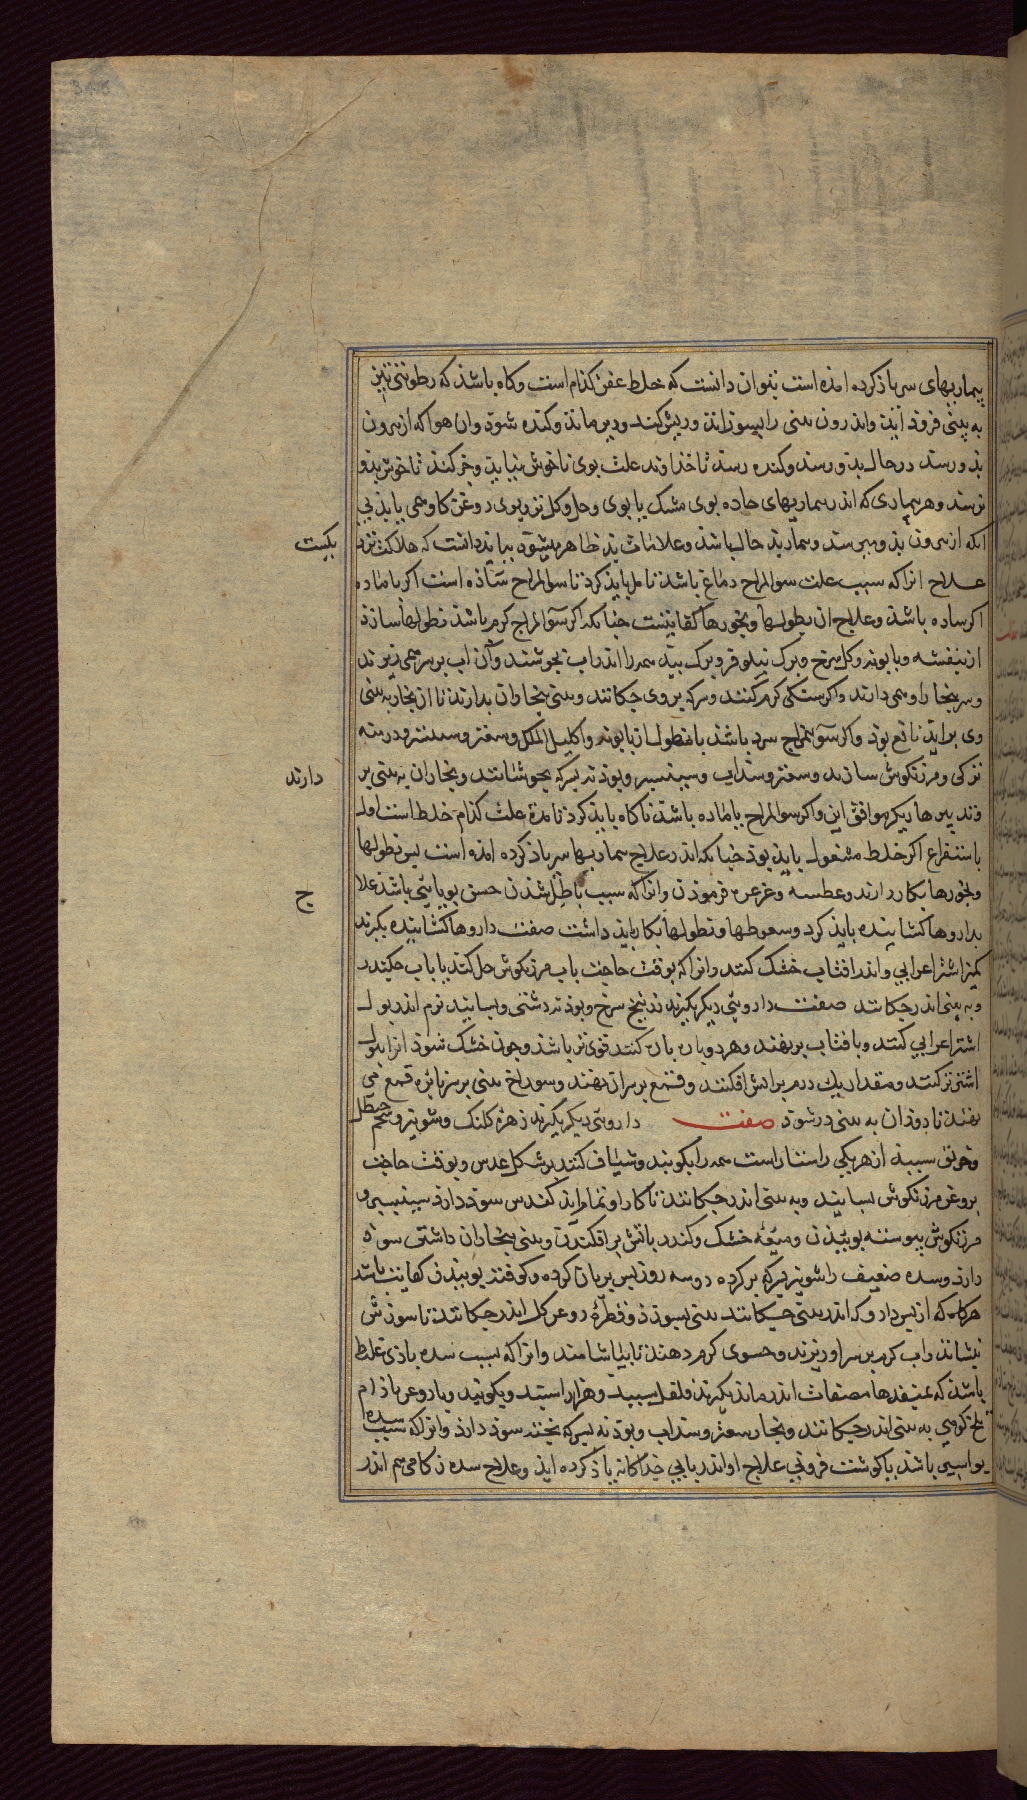 بیماریهای سر یاذ کرده امذه است بتوان دانست که خلط عفن کذام است وکاه باشذ که رطوبتی تیز
به بینی فروذ آیذ واندرون بینی را بسوزاند وریش کند ودیر ماند وکنده شود وان هوا که از بیرون
بذو رسد در حال بذو رسد وکنده رسد تا خذاوند علت بوی ناخوش بیابذ وجز کند تا خوش بذو
نرسد وهر بیماری که اندر بیماریهای حاده بوی مشک یا بوی وحل وکل تر وبوی روغن کاو همی یابذ بی
انکه از بیرون بذو میرسد وبیمار بذ حال باشذ وعلامات بذ ظاهر میشوذ ببایذ دانست که هلاکت نزد
یکست
علاج انرا که سبب علت سوالمزاج دماغ باشذ تامل بایذ کرد تا سوالمزاج ساذه است اکر با ماده
اکر ساده باشذ وعلاج ان بطولها وبخورها کفایتست جنانکه اکر سوالمزاج کرم باشذ نطولها سازذ
از بنفشه وبابونه وکل سرخ وبرک نیلوفر وبرک بید همه را اندر اب بجوشند وآن اب بر سر همی ریزند
وسر بخار او همی دارند واکر سنکی کرم کنند وسرکه بر وی جکانند وبینی ببخار ان بدارند تا ان بخار به بینی
وی برایذ نافع بوذ واکر سوالمزاج سرد باشذ نطول از بابونه واکلیل الملک وسعتر و ودرمنه
ترکی ومرزنکوش سازند وسعتر وسداب وسیسنبر وبوذنه بسرکه بجوشانند وبخار ان به بینی بر
دارند
وتدبیرها دیکر موافق این واکر سوالمزاج با ماده باشذ نکاه بایذ کرد تا مدة علت کذام خلط است اول
باستفراغ اکر خلط مشغول بایذ بوذ جنانکه اندر علاج بیماریها سر یاذ کرده امذه است پس نطولها
وبخورها بکار دارند وعطسه وغرغره فرموذن وانرا که سبب باطل شدن حس بویایی باشذ علا
ج
بداروها کشاینده بایذ کرد وسعوطها ونطولها بکار بایذ داشت صفت داروها کشاینده بکیرند
کمیز اشتر اعرابی واندر افتاب خشک کنند وانرا که بوقت حاجت باب مرزنکوش حل کنند یا باب جکندر
وبه بینی اندر جکانند صفت داروئی دیکر بکیرند زرنیخ سرخ وبوذنه دشتی وبسایند نرم اندر بول
اشتر اعرابی کنند وبافتاب بر نهند وهر دو باره بازه کنند قوی تر باشذ وجون خشک شوذ انرا ببول
اشتر تر کنند ومقدار یک درم بر اتش افکنند وقمع بر سر ان نهند وسوراخ بینی بر سر نایزه قمع می
نهند تا دوذ ان به بینی در شود صفت داروئی دیکر بکیرند زهره کلنک وشونیز وشحم حنظل
وخربق سپید از هر یکی راستاراست همه را بکوبند وشیاف کنند بر شکل عدس وبوقت حاجت
بروغن مرزنکوش بسایند وبه بینی اندر جکانند تا کار او تمام اید کندس سوذ دارد سیسنبر و
مرزنکوش پیوسته بوییذن ومیعه خشک وکندر باتش بر افکندن وبینی ببخار ان داشتن سوذ
دارذ وسده ضعیف را شونیز بسرکه تر کرده دوسه روز پس بریان کرده وکوفته بوییذن کفایت باشد
هرکاه که از پس دارو که اندر بینی جکانند بینی بسوزذ دو قطره روغن کل اندر جکانند تا سوزش
بنشاند واب کرم بر سر او ریزند وحسوی کرم دهند تا بیاشامند وانرا که سبب سده بادی غلیظ
باشذ که بمنفذها مصفات اندر ماند بکیرند فلفل سپید وهزار اسپند وبکوبند وبا روغن باذام
تلخ کوهی به بینی اندر جکانند وبخار سعتر وسداب وبوذنه بسرکه پخته سوذ دارذ وانرا که سبب سده
بواسیر باشذ یا کوشت فزونی علاج او اندر بابی جذاکانه یاذ کرده ایذ وعلاج سده زکامی هم اندر